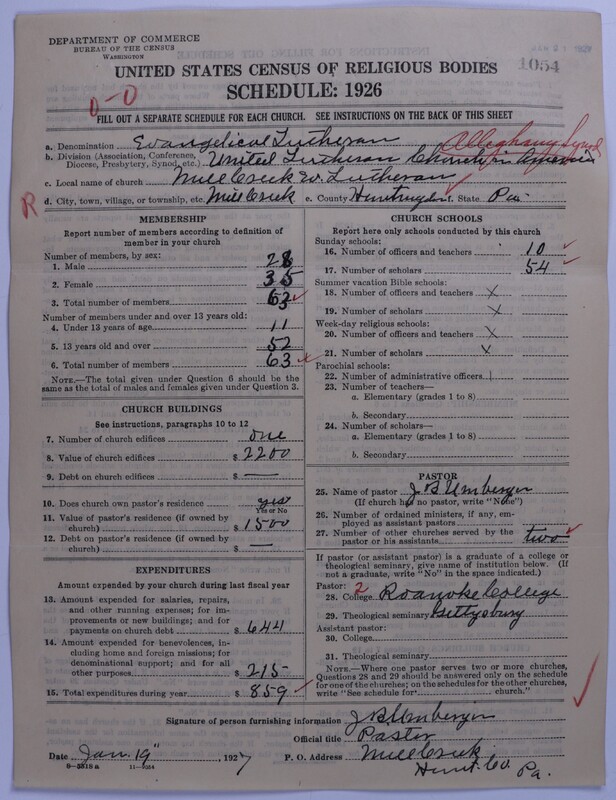 DEPARTMENT OF COMMERCE
BUREAU OF THE CENSUS
WASHINGTON
1054
UNITED STATES CENSUS OF RELIGIOUS BODIES
SCHEDULE: 1926
0-0
FILL OUT A SEPARATE SCHEDULE FOR EACH CHURCH. SEE INSTRUCTIONS ON THE BACK OF THIS SHEET
a. Denomination Evangelical Lutheran Alleghany Synod
b. Division (Association, Conference, Diocese, Presbytery, Synod, etc.) United Lutheran Church in America
c. Local name of church Mill Creek Ev. Lutheran
d. City, town, village, or township, etc. Mill Creek e. County Huntingdon f. State Pa.
R
MEMBERSHIP
Report number of members according to definition of
member in your church
Number of members, by sex:
1. Male 28
2. Female 35
3. Total number of members 63
Number of members under and over 13 years old:
4. Under 13 years of age 11
5. 13 years old and over 52
6. Total number of members 63
NOTE.—The total given under Question 6 should be
the same as the total of males and females given under Question 3.
CHURCH BUILDINGS
See instructions, paragraphs 10 to 12
7. Number of church edifices one
8. Value of church edifices $ 2200
9. Debt on church edifices $ —
10. Does church own pastor's residence yes
Yes or No
11. Value of pastor's residence (if owned by
church) $ 1500
12. Debt on pastor's residence (if owned by
church) $ —
EXPENDITURES
Amount expended by your church during last fiscal year
13. Amount expended for salaries, repairs,
and other running expenses; for im-
provements or new buildings; and for
payments on church debt $ 644
14. Amount expended for benevolences, in-
cluding home and foreign missions; for
denominational support; and for all
other purposes $ 215
15. Total expenditures during year $ 859
CHURCH SCHOOLS
Report here only schools conducted by this church
Sunday schools:
16. Number of officers and teachers 10
17. Number of scholars 54
Summer vacation Bible schools:
18. Number of officers and teachers X
19. Number of scholars X
Week-day religious schools:
20. Number of officers and teachers X
21. Number of scholars X
Parochial schools:
22. Number of administrative officers
23. Number of teachers—
a. Elementary (grades 1 to 8)
b. Secondary
24. Number of scholars—
a. Elementary (grades 1 to 8)
b. Secondary
PASTOR
25. Name of pastor J B Umberger
(If church has no pastor, write "None")
26. Number of ordained ministers, if any, em-
ployed as assistant pastors
27. Number of other churches served by the
pastor or his assistants two
If pastor (or assistant pastor) is a graduate of a college or
theological seminary, give name of institution below. (If
not a graduate, write "No" in the space indicated.)
Pastor: 2
28. College Roanoke College
29. Theological seminary Gettysburg
Assistant pastor:
30. College
31. Theological seminary
NOTE.—Where one pastor serves two or more churches,
Questions 28 and 29 should be answered only on the schedule
for one of the churches; on the schedules for the other churches,
write "See schedule for church."
Signature of person furnishing information J B Umberger
Official title Pastor
Date Jan. 19", 1927 P. O. Address Mill Creek
Hunt. Co. Pa.
8-5318a 11-9054